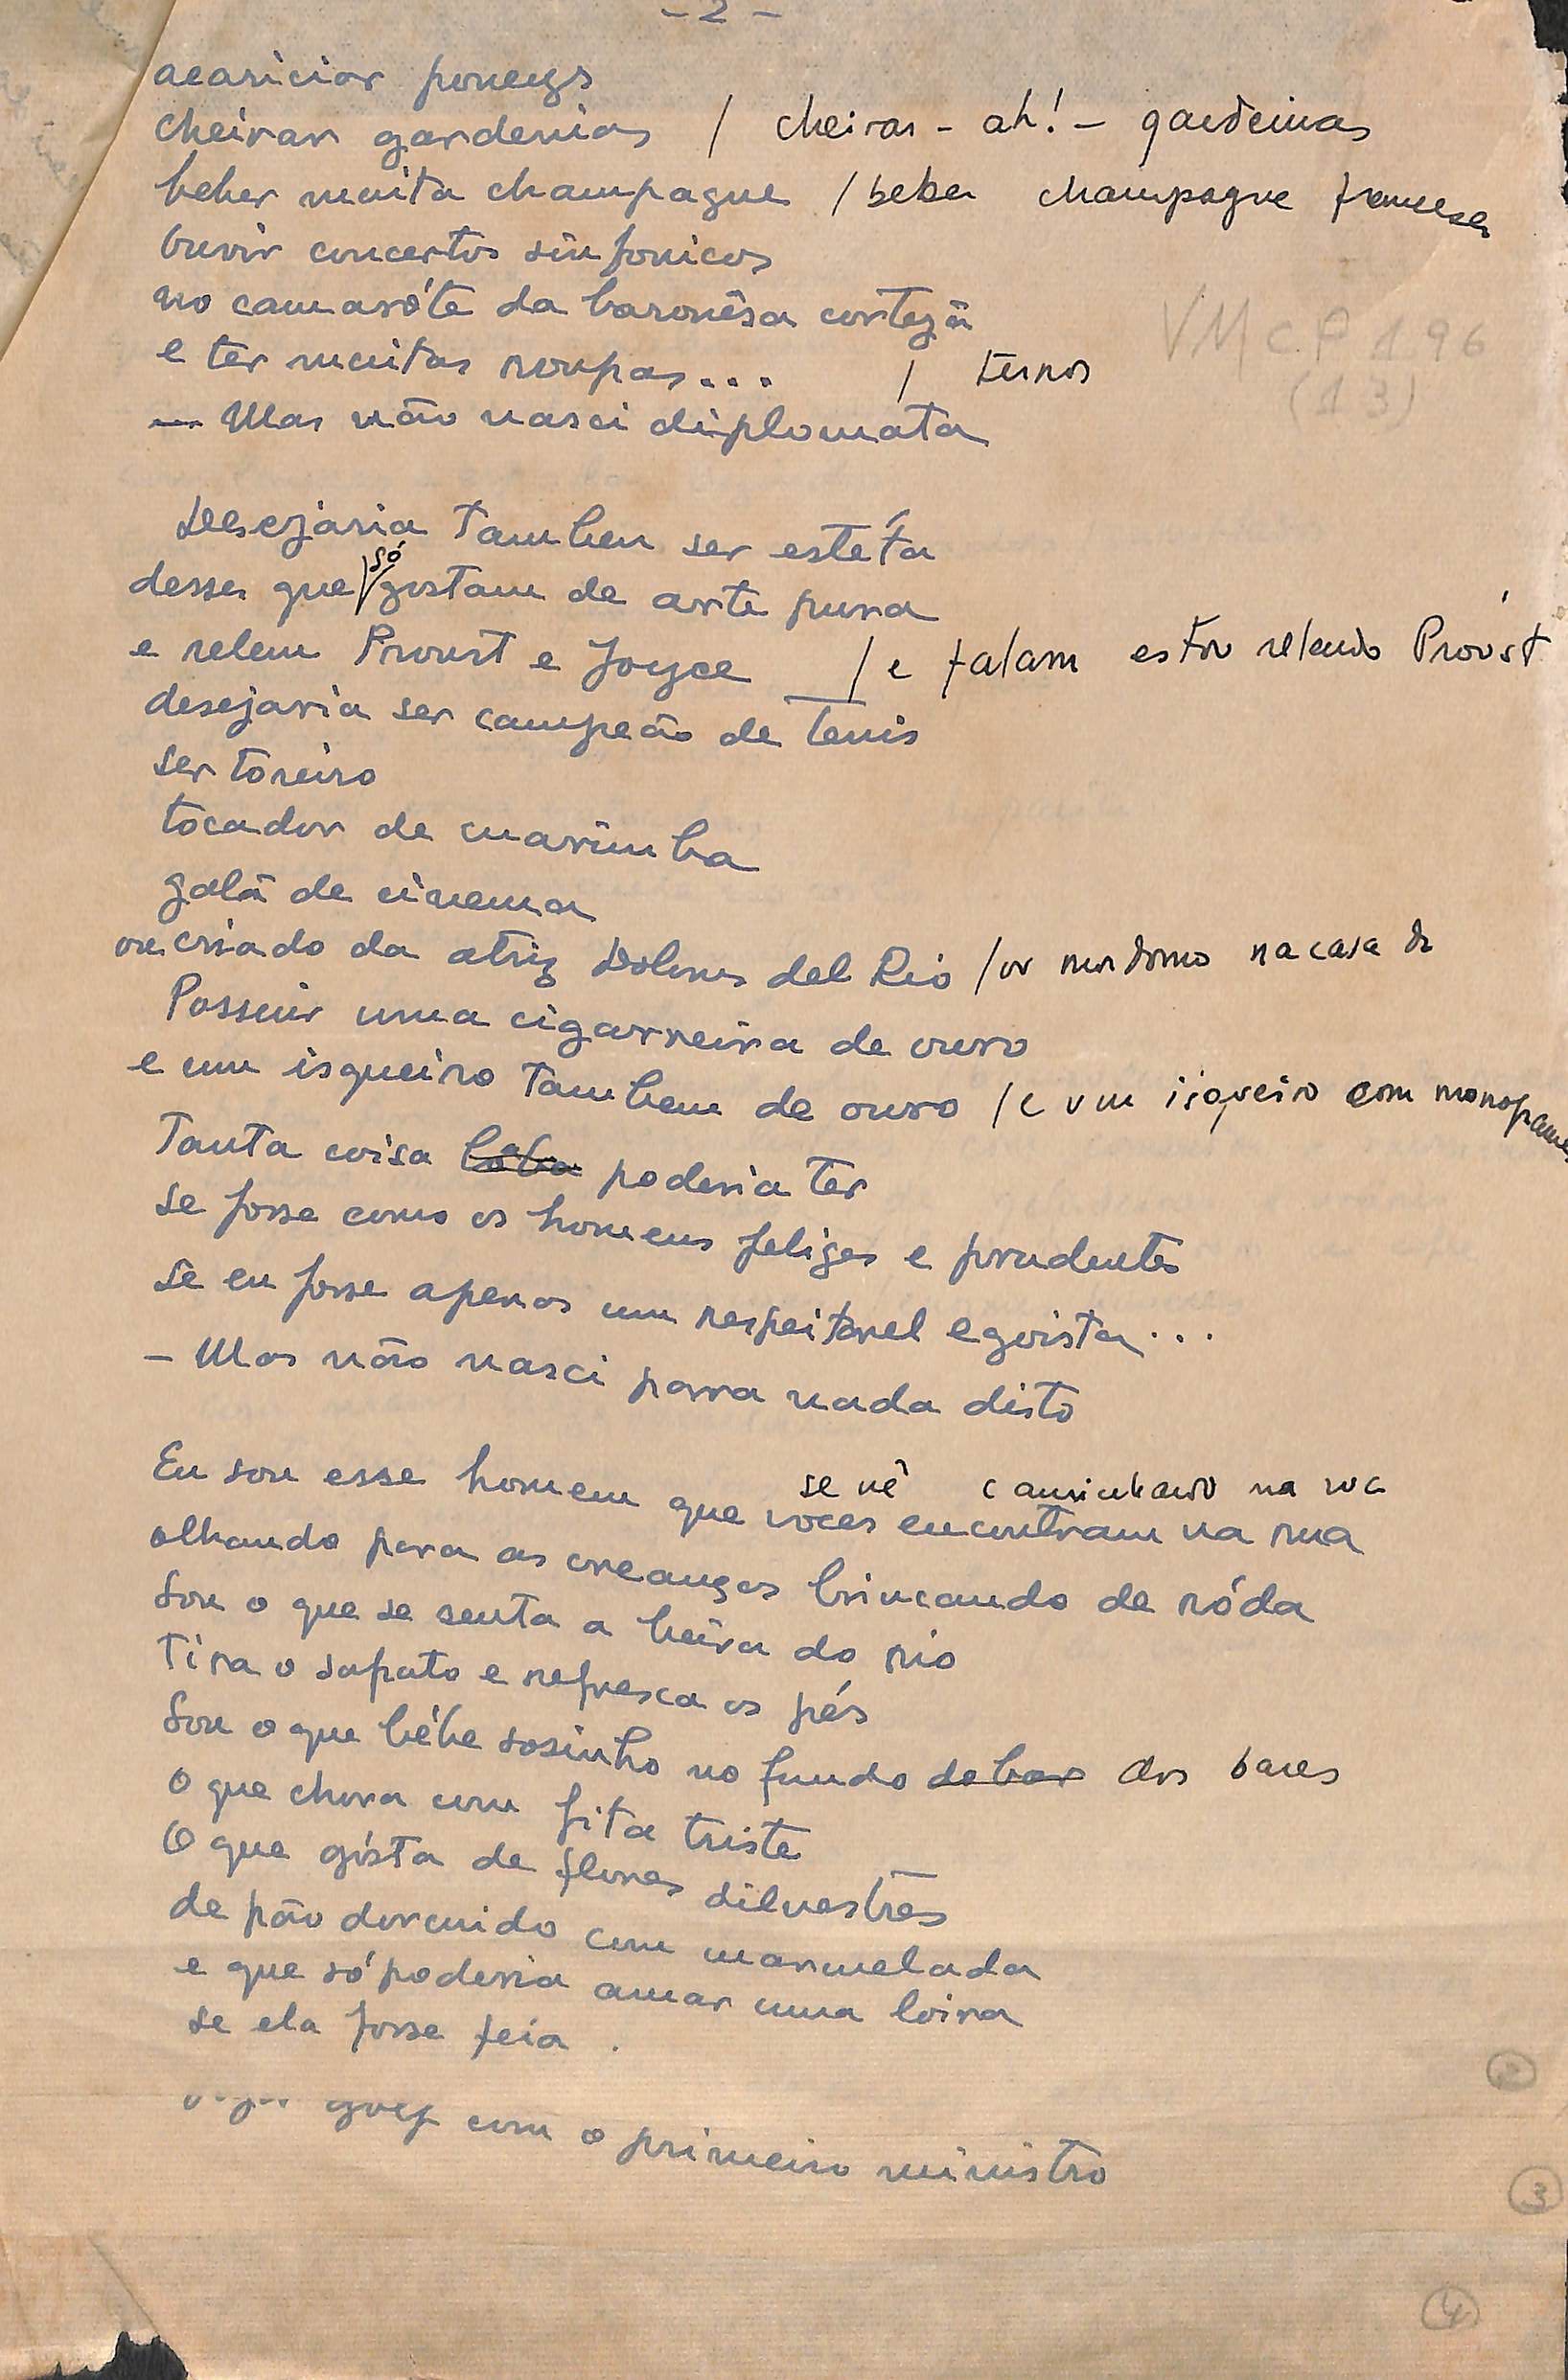 - 2 -
acariciar poneys
cheirar gardenias / cheirar - ah! - gardenias
beber muita champagne / beber champagne francesa
Ouvir concertos sinfonicos
no camaróte da baronêsa cortezã
e ter muitas roupas... / ternos
VMcP196
(13)
— Mas não nasci diplomata
Desejaria tambem ser estéta
desses que só gostam de arte pura
e relem Proust e Joyce / e falam estou relendo Proust
desejaria ser campeão de tenis
ser toreiro
tocador de marimba
galã de cinema
ou criado da atriz Dolores del Rio / ou mordomo na casa de
Possuir uma cigarreira de ouro
e um isqueiro tambem de ouro / e um isqueiro com monograma
Tanta coisa bôba poderia ter
se fosse como os homens felizes e prudentes
Se eu fosse apenas um respeitavel egoista...
- Mas não nasci para nada disto
se vê caminhando na rua
Eu sou esse homem que voces encontram na rua
olhando para as creanças brincando de róda
Sou o que se senta a beira do rio
Tira o sapato e refresca os pés
Sou o que bébe sosinho no fundo do bar dos bares
O que chora com fita triste
O que gósta de flores silvestres
de pão dormido com marmelada
e que só poderia amar uma loira
se ela fosse feia.
com o primeiro ministro
2
3
4